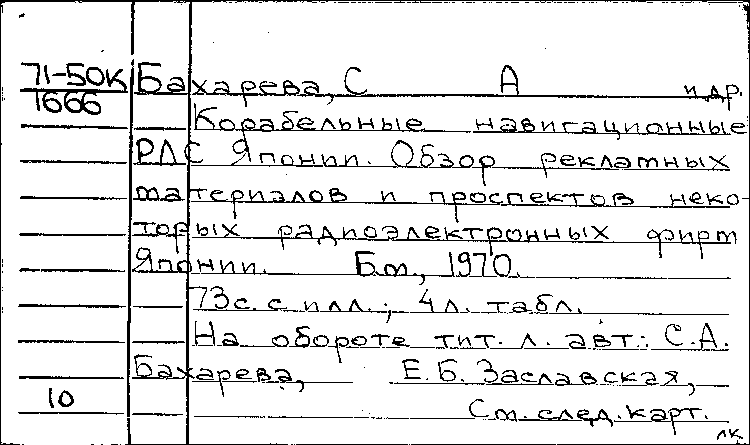 71-50К Бахарева, С А и др.
1666
Корабельные навигационные
РЛС Японии. Обзор рекламных
материалов и проспектов неко-
торых радиоэлектронных фирм
Японии. Б.м., 1970.
73с. с илл.; 4л. табл.
На обороте тит. л. авт.: С.А.
Бахарева, Е.Б. Заславская,
10 См. след. карт.
лк